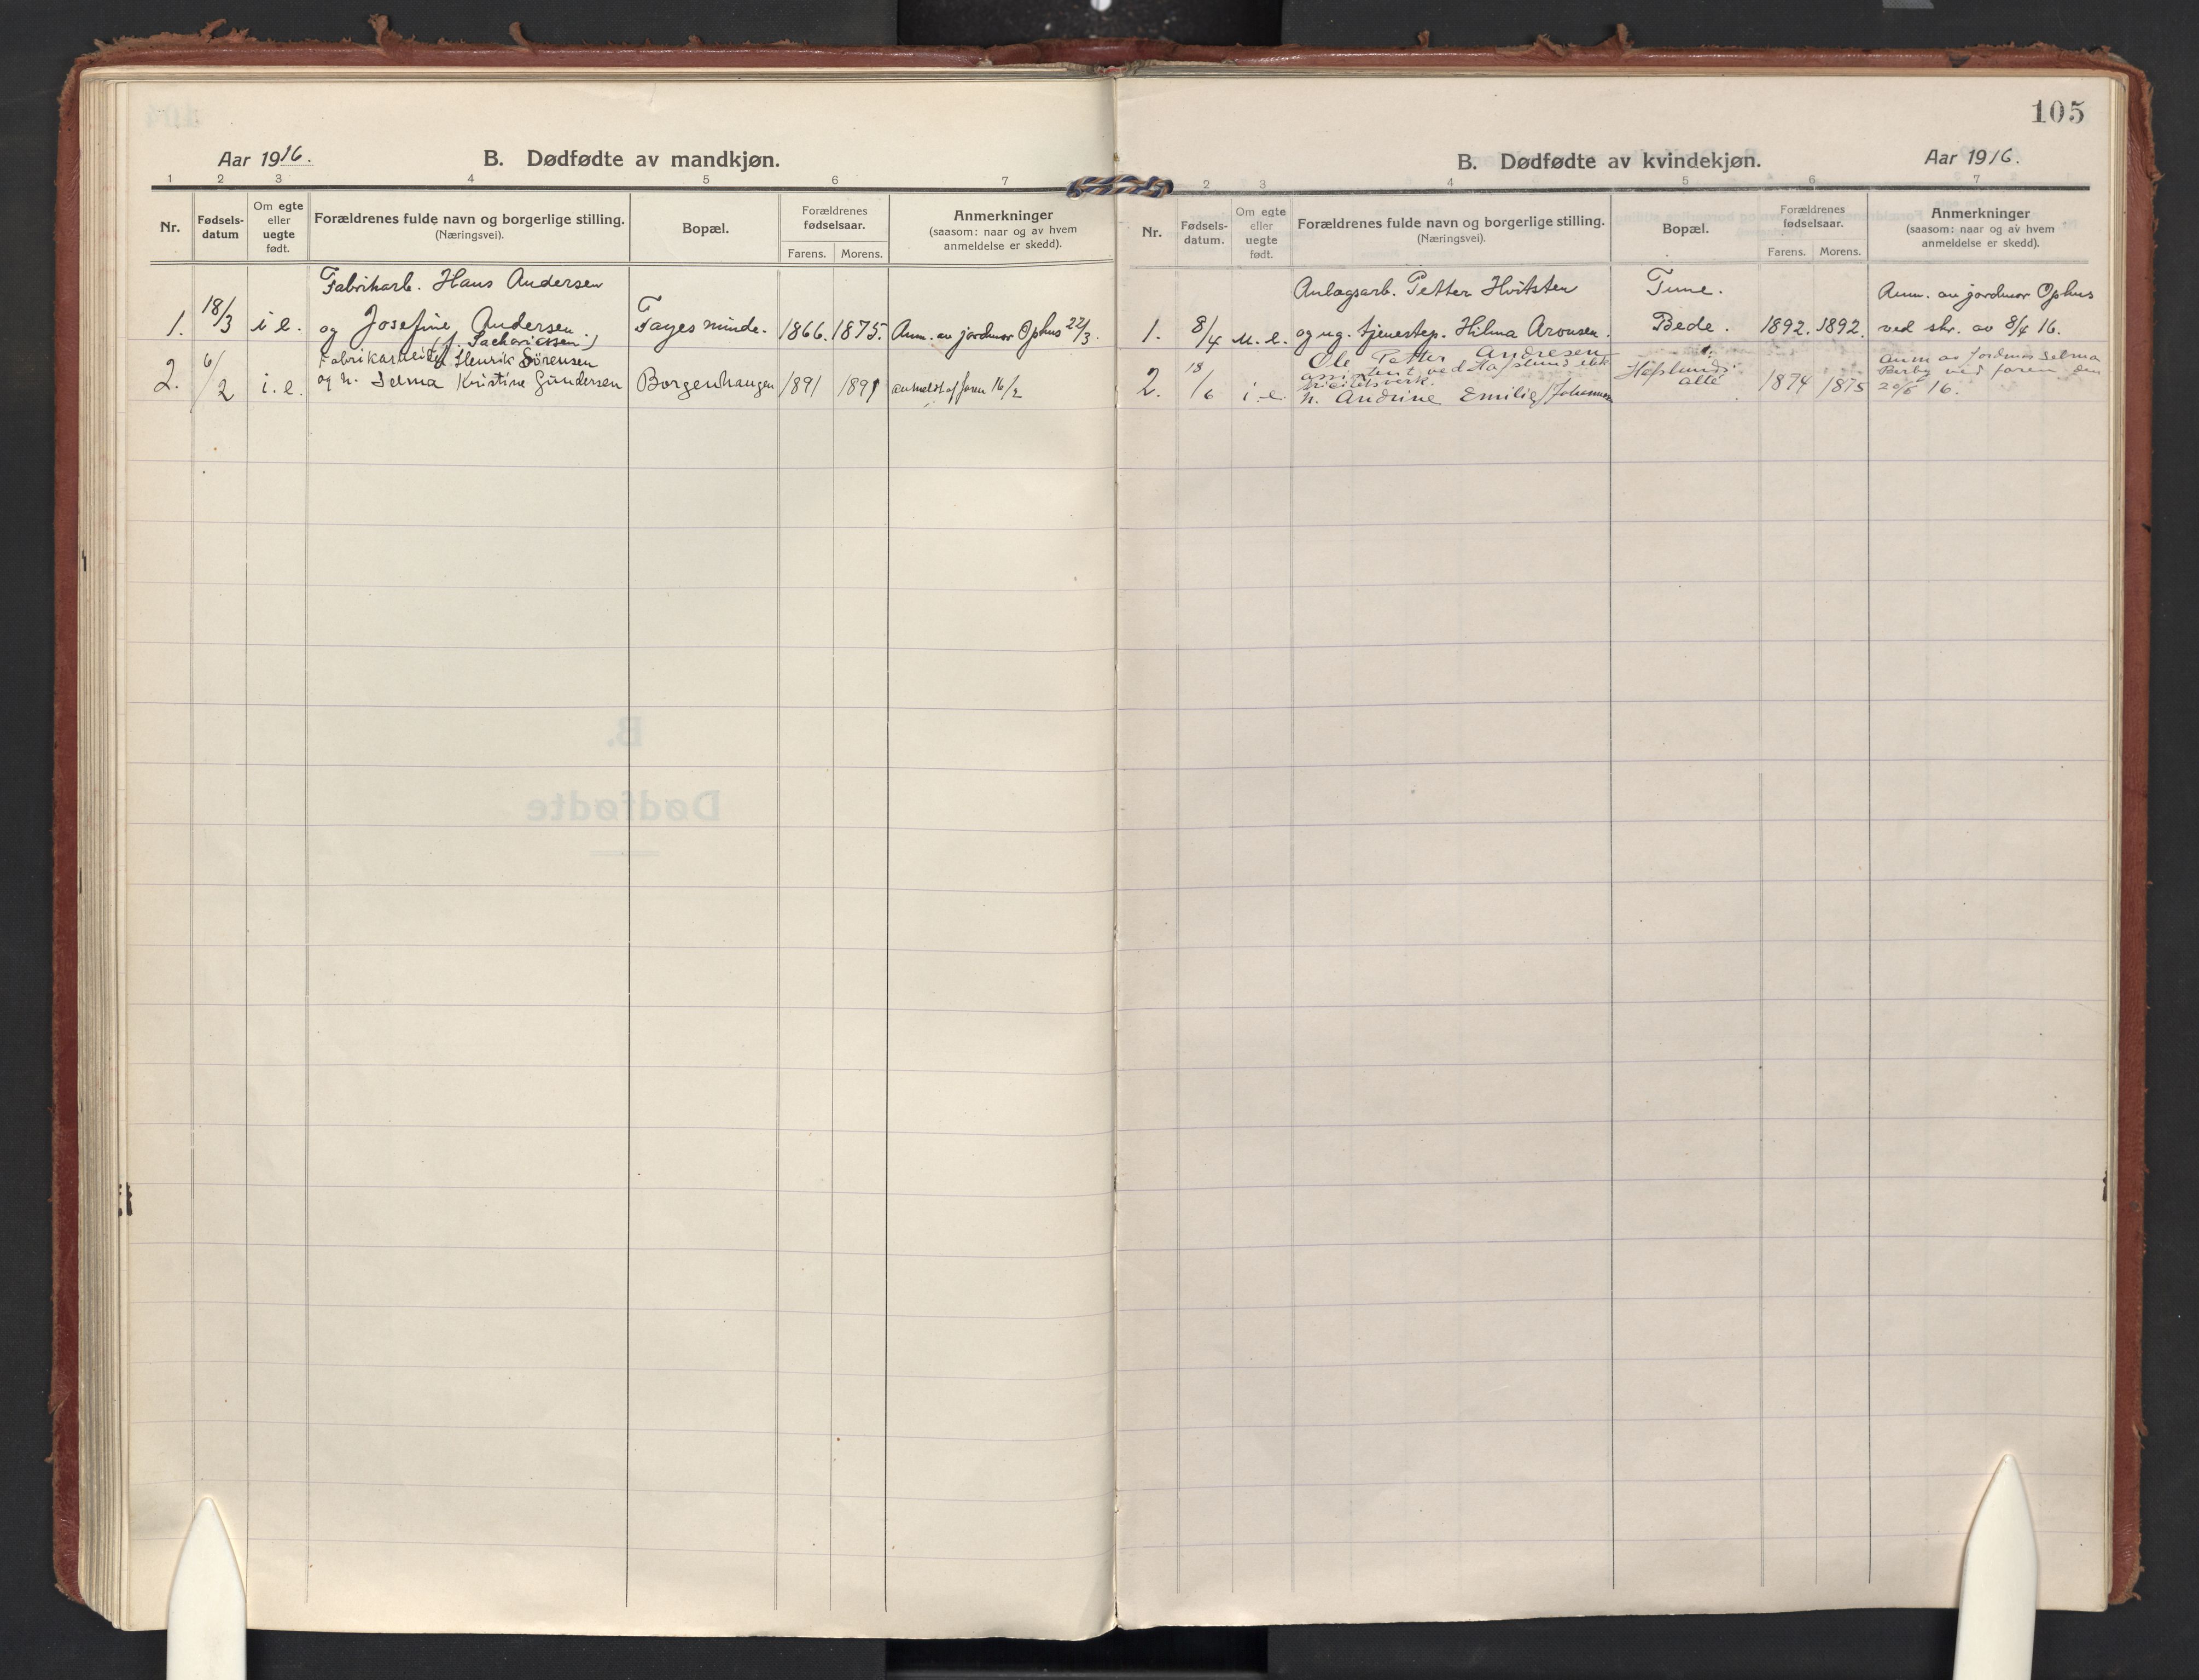 105
Aar 1916.
B. Dødfødte av mandkjøn.
1 2 3 4 5 6 7
Nr.
Fødsels-
datum
Om egte
eller
uegte
født.
Forældrenes fulde navn og borgerlige stilling.
(Næringsvei).
Bopæl.
Forældrenes
fødselsaar.
Farens. Morens.
Anmerkninger
(saasom: naar og av hvem
anmeldelse er skedd).
Fabrikarb. Hans Andersen
1. 18/3 i e. og Josefine Andersen Fayes minde. 1866. 1875. Anm. av jordmor Ophus 22/3.
(f. Sachariassen.)
Fabrikarbeider Henrik Sörensen
2. 6/2 i. e. og h. Selma Kristine Gundersen Borgenhaugen 1891 1891 anmeldt af faren 16/2
B. Dødfødte av kvindekjøn.
Aar 1916.
2 3 4 5 6 7
Nr.
Fødsels-
datum.
Om egte
eller
uegte
født.
Forældrenes fulde navn og borgerlige stilling.
(Næringsvei).
Bopæl.
Forældrenes
fødselsaar.
Farens. Morens.
Anmerkninger
(saasom: naar og av hvem
anmeldelse er skedd).
Anlægsarb. Petter Hvitsten Tune. Anm. av jordmor Ophus
1. 8/4 u. e. og ug. tjenestep. Hilma Aronsen. Bede. 1892. 1892. ved skr. av 8/4 16.
Ole Petter Andresen
assistent ved Hafslund elek
tricitetsverk.
2. 18/6 i. e. h. Andrine Emilie Johannesen Hafslunds
alle 1874 1875 anm av Jordmor Selma
ved faren den
20/6 16.